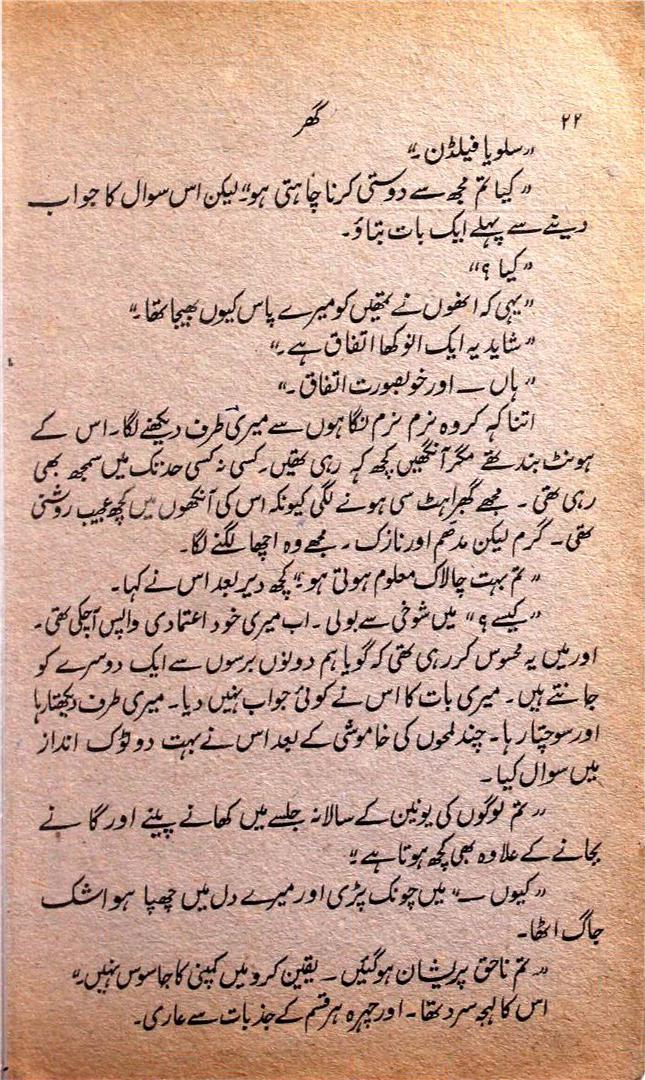 ۲۲ گھر
"سلویا فیلڈن۔"
"کیا تم مجھ سے دوستی کرنا چاہتی ہو۔" لیکن اس سوال کا جواب
دینے سے پہلے ایک بات بتاؤ۔
"کیا ؟"
"یہی کہ انھوں نے تمھیں کو میرے پاس کیوں بھیجا تھا۔"
"شاید یہ ایک انوکھا اتفاق ہے۔"
"ہاں ــ اور خوبصورت اتفاق۔"
اتنا کہہ کر وہ نرم نرم نگاہوں سے میری طرف دیکھنے لگا۔ اس کے
ہونٹ بند تھے مگر آنکھیں کچھ کہہ رہی تھیں۔ کسی نہ کسی حد تک میں سمجھ بھی
رہی تھی ۔ مجھے گھبراہٹ سی ہونے لگی کیونکہ اس کی آنکھوں میں کچھ عجیب روشنی
تھی۔ گرم لیکن مدھم اور نازک ۔ مجھے وہ اچھا لگنے لگا۔
"تم بہت چالاک معلوم ہوتی ہو۔" کچھ دیر بعد اس نے کہا۔
"کیسے ؟" میں شوخی سے بولی ۔ اب میری خود اعتمادی واپس آچکی تھی۔
اور میں یہ محسوس کر رہی تھی کہ گویا ہم دونوں برسوں سے ایک دوسرے کو
جانتے ہیں۔ میری بات کا اس نے کوئی جواب نہیں دیا۔ میری طرف دیکھتا رہا
اور سوچتا رہا۔ چند لمحوں کی خاموشی کے بعد اس نے بہت دو ٹوک انداز
میں سوال کیا۔
"تم لوگوں کی یونین کے سالانہ جلسے میں کھانے پینے اور گانے
بجانے کے علاوہ بھی کچھ ہوتا ہے۔"
"کیوں ــ" میں چونک پڑی اور میرے دل میں چھپا ہوا شک
جاگ اٹھا۔
"تم ناحق پریشان ہوگئیں ۔ یقین کرو میں کمپنی کا جاسوس نہیں۔"
اس کا لہجہ سرد تھا۔ اور چہرہ ہر قسم کے جذبات سے عاری۔